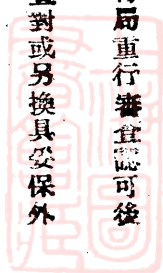 局重行審查認可後
對或另換具妥保外